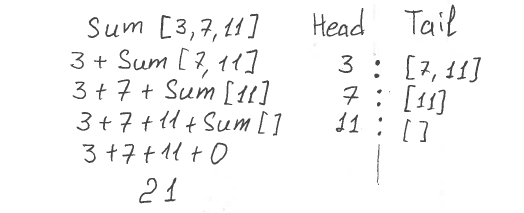 Sum [3,7,11] Head Tail
3 + Sum [7,11] 3 : [7,11]
3 + 7 + Sum [11] 7 : [11]
3 + 7 + 11 + Sum [] 11 : []
3 + 7 + 11 + 0
21